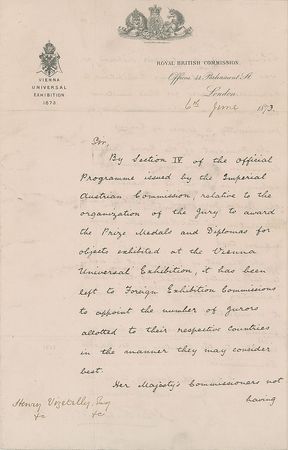 VIENNA
UNIVERSAL
EXHIBITION
1873
ROYAL BRITISH COMMISSION.
Offices, 41 Parliament St.
London.
6th June 1873.
Sir,
By Section IV of the Official
Programme issued by the Imperial
Austrian Commission, relative to the
organization of the Jury to award
the Prize Medals and Diplomas for
objects exhibited at the Vienna
Universal Exhibition, it has been
left to Foreign Exhibition Commissions
to appoint the number of Jurors
allotted to their respective countries
in the manner they may consider
best.
Her Majesty's Commissioners not
having
Henry Vizetelly, Esq
&c &c